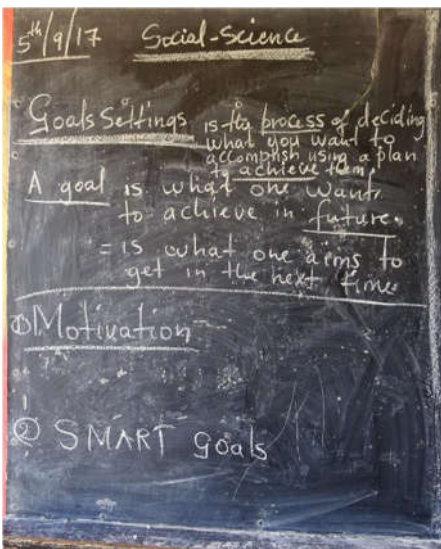 5th/9/17 Social-Science
Goals Settings is the process of deciding
what you want to
accomplish using a plan
to achieve them
A goal is what one want
to achieve in future.
= is what one aims to
get in the next time
① Motivation
② SMART goals